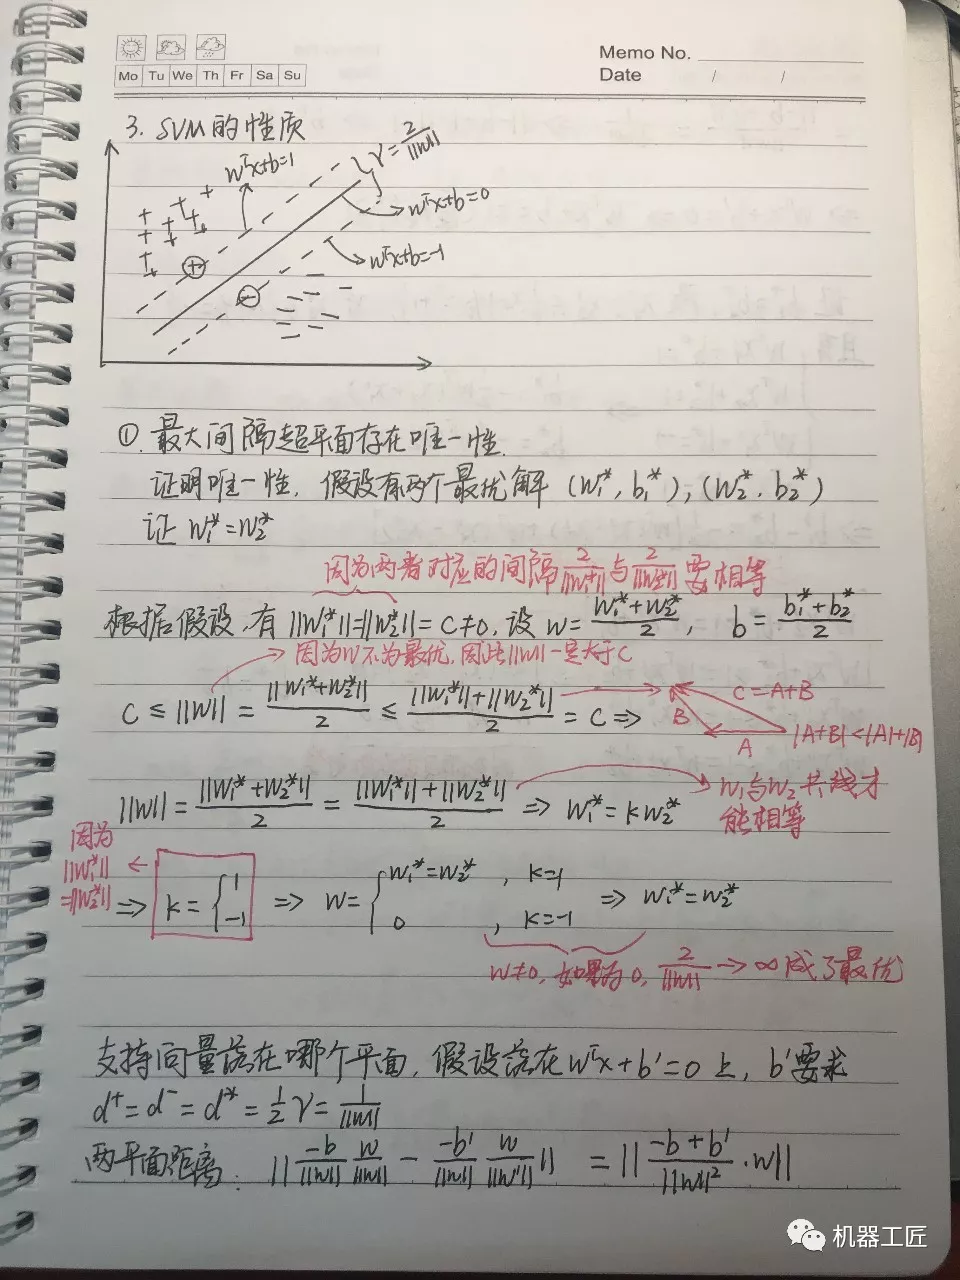 Mo Tu We Th Fr Sa Su
Memo No.
Date / /
3. SVM的性质
wᵀx+b=1
γ=2/||w||
wᵀx+b=0
wᵀx+b=-1
① 最大间隔超平面存在唯一性.
证明唯一性, 假设有两个最优解 (w₁*, b₁*), (w₂*, b₂*)
证 w₁*=w₂*
因为两者对应的间隔 2/||w₁*|| 与 2/||w₂*|| 要相等
根据假设, 有 ||w₁*||=||w₂*||=C≠0, 设 w=(w₁*+w₂*)/2, b=(b₁*+b₂*)/2
因为w不为最优, 因此||w||一定大于C
C ≤ ||w|| = ||w₁*+w₂*||/2 ≤ (||w₁*||+||w₂*||)/2 = C ⇒
C=A+B
B
A
|A+B|<|A|+|B|
||w|| = ||w₁*+w₂*||/2 = (||w₁*||+||w₂*||)/2 ⇒ w₁*=kw₂*
w₁与w₂共线才
能相等
因为
||w₁*||
=||w₂*||
⇒ k={1, -1 ⇒ w={w₁*=w₂*, k=1; 0, k=-1 ⇒ w₁*=w₂*
w≠0, 如果为0, 2/||w|| → ∞ 成了最优
支持向量落在哪个平面, 假设落在wᵀx+b'=0上, b'要求
d⁺=d⁻=d*=1/2 γ=1/||w||
两平面距离: ||-b/||w|| w/||w|| - -b'/||w|| w/||w'|| || = ||(-b+b')/||w||²·w||
机器工匠